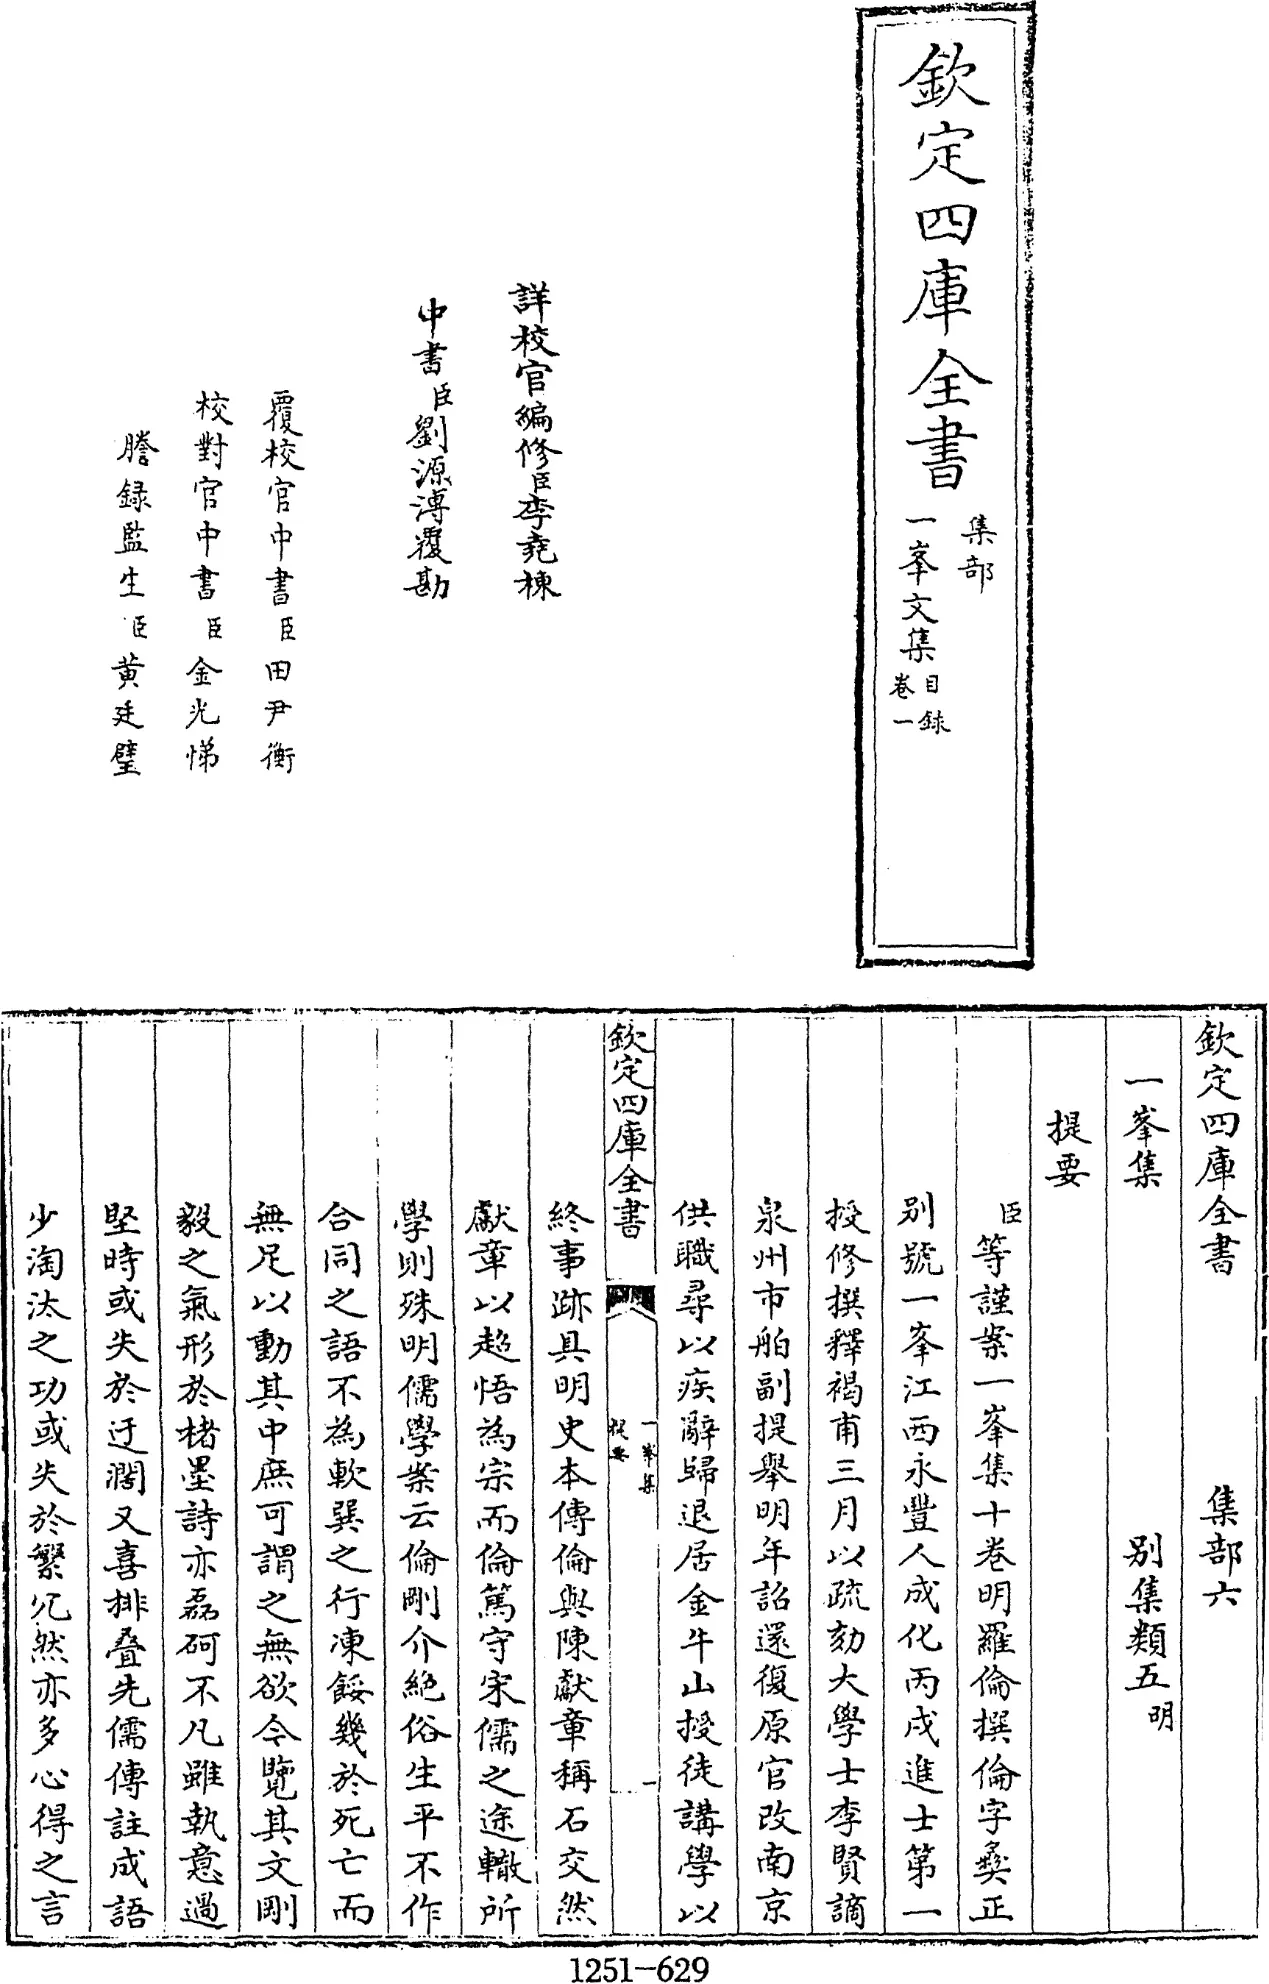 欽定四庫全書
集部
一峯文集
目録
卷一
詳校官編修臣李堯棟
中書臣劉源溥覆勘
覆校官中書臣田尹衡
校對官中書臣金光悌
謄録監生臣黄廷璧
欽定四庫全書 集部六
一峯集 别集類五明
提要
臣等謹案一峯集十卷明羅倫撰倫字彝正
别號一峯江西永豐人成化丙戌進士第一
授修撰釋褐甫三月以疏劾大學士李賢謫
泉州市舶副提舉明年詔還復原官改南京
供職尋以疾辭歸退居金牛山授徒講學以
欽定四庫全書
一峯集
提要
一
終事跡具明史本傳倫與陳獻章稱石交然
獻章以超悟為宗而倫篤守宋儒之途轍所
學則殊明儒學案云倫剛介絶俗生平不作
合同之語不為軟巽之行凍餒幾於死亡而
無足以動其中庶可謂之無欲今覽其文剛
毅之氣形於楮墨詩亦磊砢不凡雖執意過
堅時或失於迂濶又喜排叠先儒傳註成語
少淘汰之功或失於繁冗然亦多心得之言
1251-629